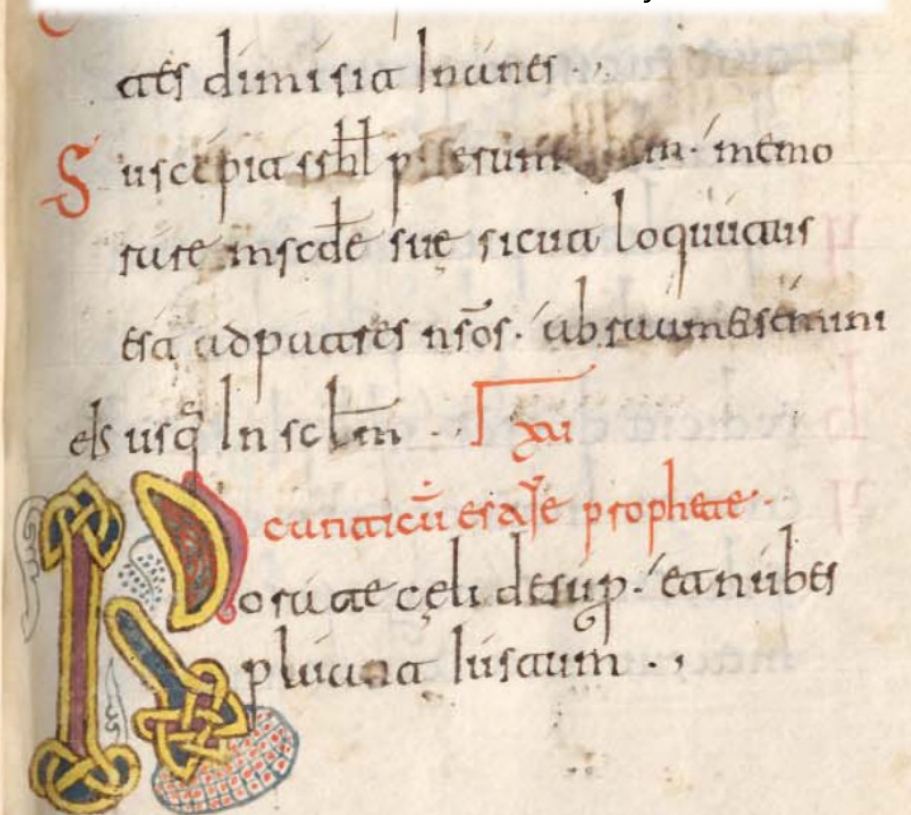 tes dimisit Inanes
Suscepit srhl puerum · memo
rare mscde sue sicut loquutus
est ad patres nsos · abraam et semini
eIs usq In sclm · xvi
canticū esaye prophete ·
Rorate cęli desup · et nubes
pluant Iustum ·